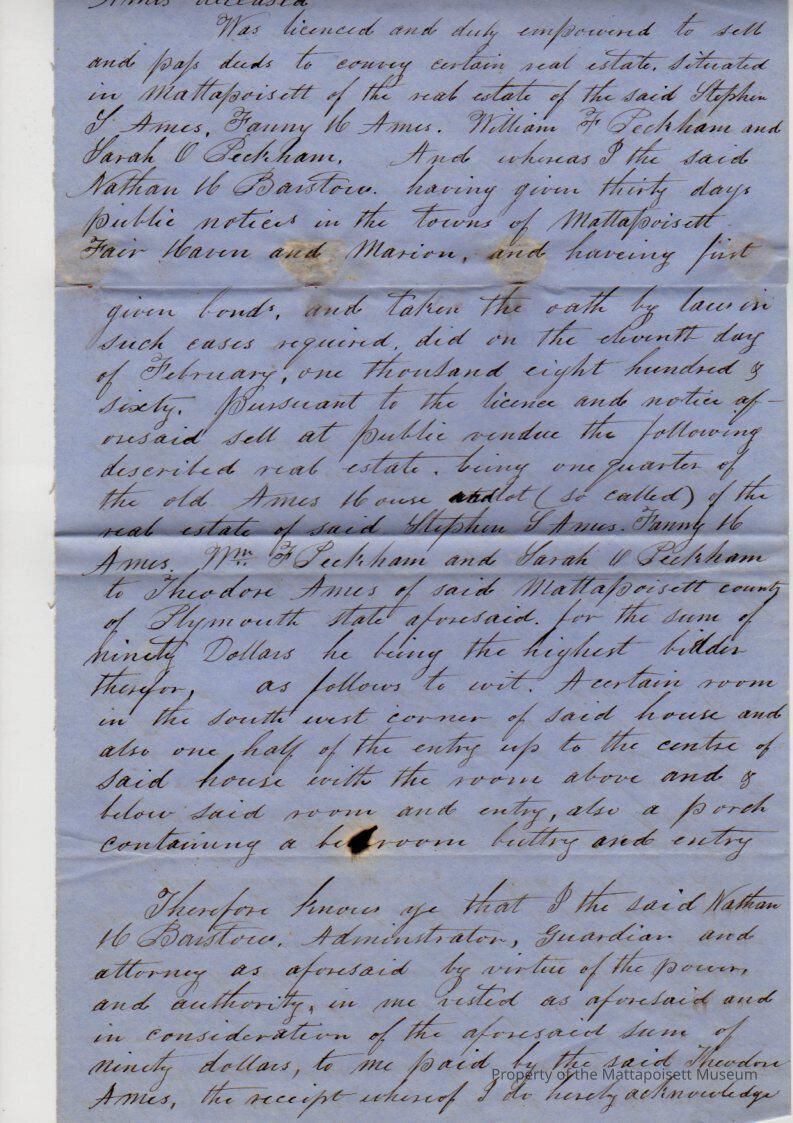 Ames deceased
Was licenced and duly empowered to sell
and pass deeds to convey certain real estate. situated
in Mattapoisett of the real estate of the said Stephen
S Ames, Fanny H Ames. William F Peckham and
Sarah O Peckham. And whereas I the said
Nathan H Barstow. having given thirty days
public notices in the towns of Mattapoisett.
Fair Haven and Marion, and haveing first
given bonds, and taken the oath by law in
such cases required, did on the eleventh day
of February, one thousand eight hundred &
sixty. Pursuant to the licence and notice af-
oresaid sell at public vendue the following
described real estate. being one quarter of
the old Ames House and lot (so called) of the
real estate of said Stephen S Ames. Fanny H
Ames. Wm F Peckham and Sarah O Peckham
to Theodore Ames of said Mattapoisett county
of Plymouth state aforesaid. for the sum of
ninety Dollars he being the highest bidder
therefor, as follows to wit. A certain room
in the south west corner of said house and
also one half of the entry up to the centre of
said house with the room above and &
below said room and entry, also a porch
containing a bedroom buttry and entry
Therefore know ye that I the said Nathan
H Barstow. Adminstrator, Guardian and
attorney as aforesaid by virtue of the power,
and authority, in me vested as aforesaid and
in consideration of the aforesaid sum of
ninety dollars, to me paid by the said Theodore
Ames, the receipt whereof I do hereby acknowledge
Property of the Mattapoisett Museum